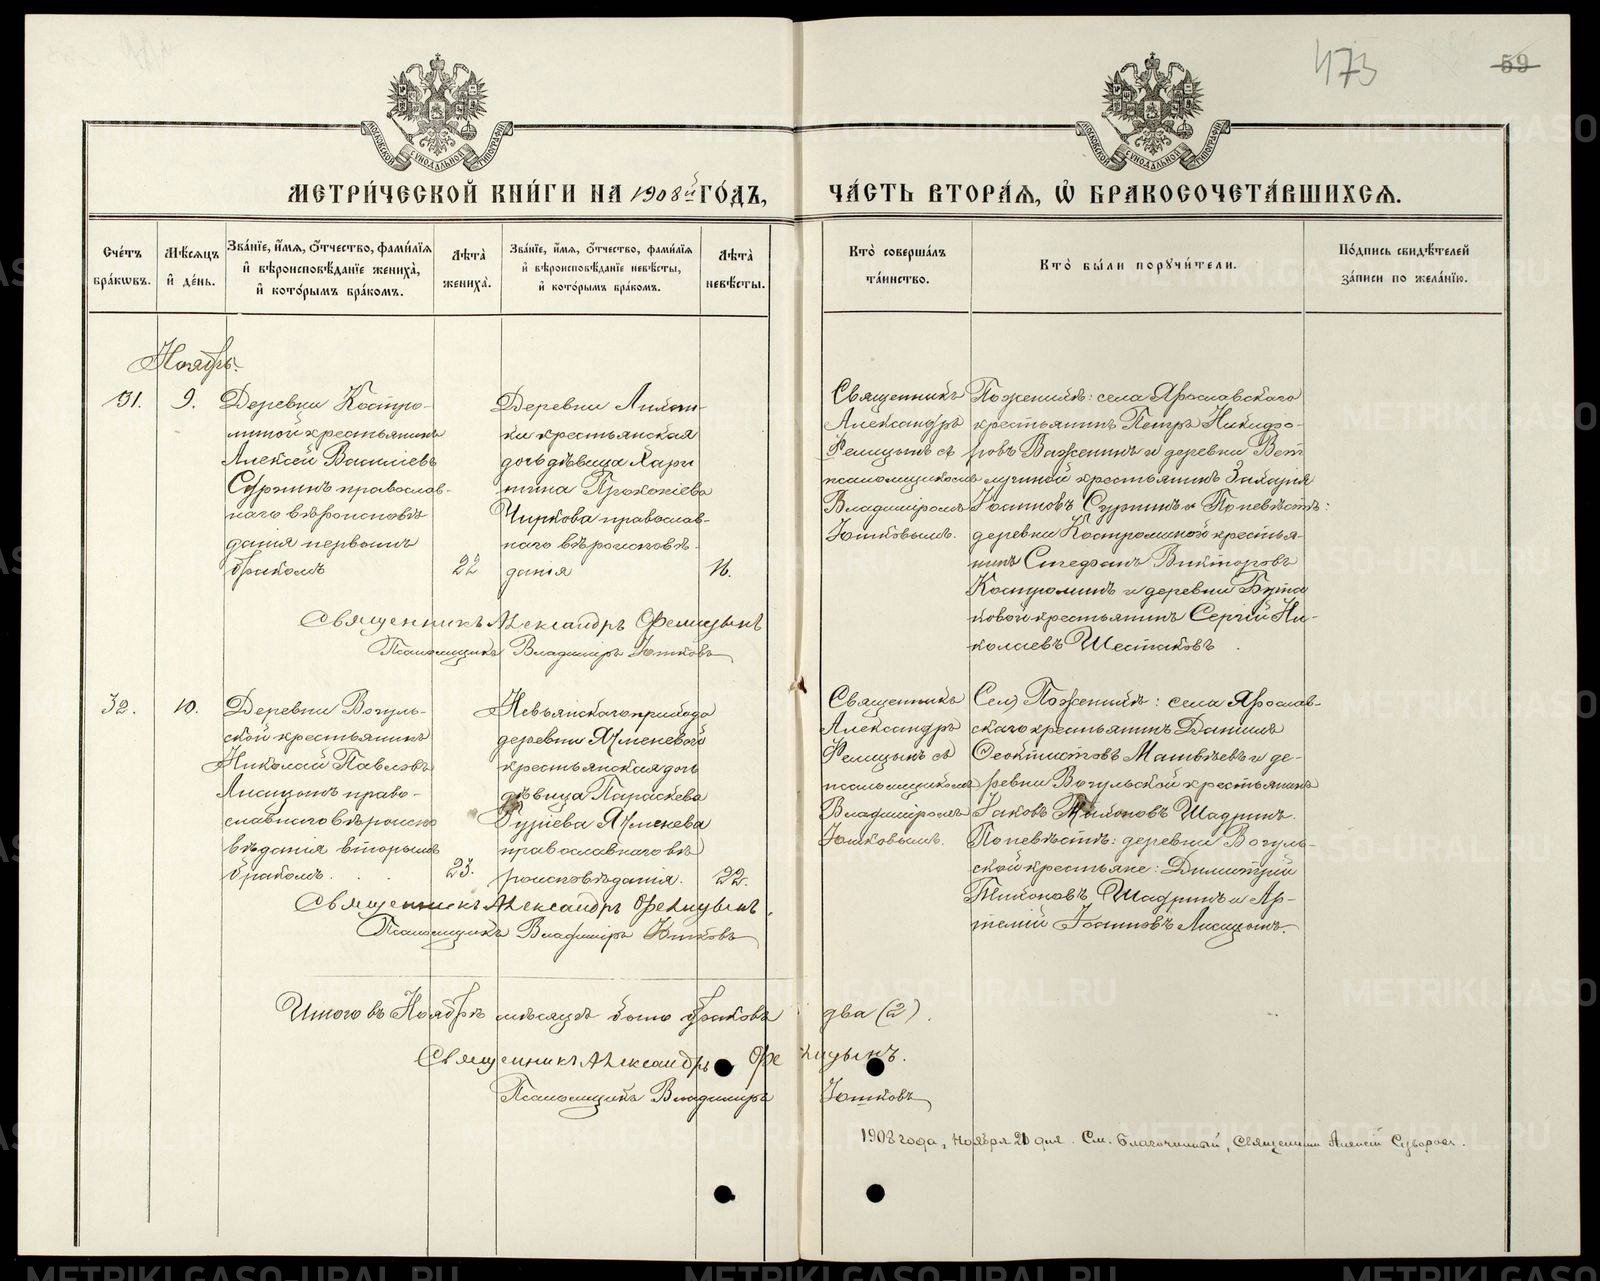 473
59
МОСКОВСКОЙ СѴНОДАЛЬНОЙ ТИПОГРАФІИ
МОСКОВСКОЙ СѴНОДАЛЬНОЙ ТИПОГРАФІИ
МЕТРИ́ЧЕСКОЙ КНИ́ГИ НА 1908й ГО́ДЪ,
ЧА́СТЬ ВТОРА́Ѧ, Ѡ҆ БРАКОСОЧЕТА́ВШИХСѦ.
Сче́тъ бра́кѡвъ.
Мѣ́сѧцъ и҆ де́нь.
Зва́нїе, и҆́мѧ, ѻ҆́тчество, фами́лїѧ и҆ вѣроисповѣ́данїе жениха̀, и҆ кото́рымъ бра́комъ.
Лѣ́та жениха̀.
Зва́нїе, и҆́мѧ, ѻ҆́тчество, фами́лїѧ и҆ вѣроисповѣ́данїе невѣ́сты, и҆ кото́рымъ бра́комъ.
Лѣ́та невѣ́сты.
Кто̀ соверша́лъ та́инство.
Кто̀ бы́ли порꙋчи́тели.
По́дпись свидѣ́телей за́писи по жела́нїю.
Ноябрь.
31.
9.
Деревни Костро-
миной крестьянинъ
Алексѣй Васильевъ
Сурнинъ православ-
наго вѣроисповѣ
данія первымъ
бракомъ
22
Деревни
крестьянская
дочь дѣвица Хари
тина Прокопіева
Чиркова православ-
наго вѣроисповѣ-
данія
Священникъ
Александръ
Фелицынъ съ
псаломщикомъ
Владиміромъ
Юшковымъ.
По женихѣ: села Ярославскаго
крестьянинъ Петръ Никифо-
ровъ Важенинъ и деревни
крестьянинъ Захарія
Іоанновъ Сурнинъ и По невѣстѣ:
деревни Костроминой крестья-
нинъ Стефанъ Викторовъ
Костроминъ и деревни Бута
ковой крестьянинъ Сергій Ни-
колаевъ Шестаковъ.
Священникъ Александръ Фелицынъ
Псаломщикъ Владиміръ Юшковъ
32.
10.
Деревни Вогуль-
ской крестьянинъ
Николай Павловъ
Лисицынъ право-
славнаго вѣроиспо
вѣданія вторымъ
бракомъ.
23.
Невьянскаго прихода
деревни Ячменевой
крестьянская дочь
дѣвица Параскева
Гуріева Ячменева
православнаго вѣ
роисповѣданія.
22.
Священникъ
Александръ
Фелицынъ съ
псаломщикомъ
Владиміромъ
Юшковымъ.
По женихѣ: села Ярослав-
скаго крестьянинъ Даніилъ
Ѳеоктистовъ Матвѣевъ и де-
ревни Вогульской крестьянинъ
Іаковъ Тихоновъ Шадринъ.
По невѣстѣ: деревни Вогуль-
ской крестьяне: Димитрій
Тихоновъ Шадринъ и Ар-
темій Іоанновъ Лисицынъ.
Священникъ Александръ Фелицынъ.
Псаломщикъ Владиміръ Юшковъ
Итого въ Ноябрѣ мѣсяцѣ было браковъ два (2).
Священникъ Александръ Фелицынъ.
Псаломщикъ Владиміръ Юшковъ
1908 года, Ноября 20 дня. См. Благочинный, Священникъ Алексій Суворовъ.
METRIKI.GASO-URAL.RU